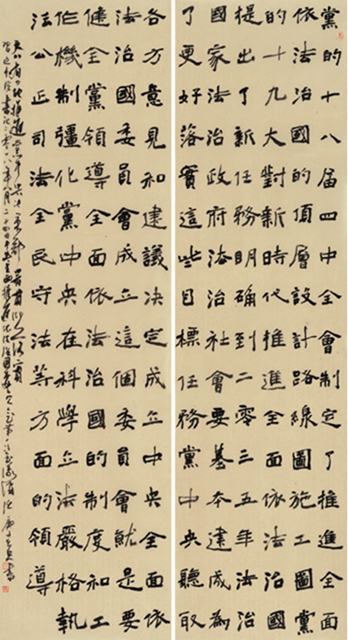 黨的十八届四中全會制定了推進全面
依法治國的頂層設計路線圖施工圖黨
的十九大對新時代推進全面依法治國
提出了新任務明確到二零三五年法治
國家法治政府法治社會要基本建成為
了更好落實這些目標任務黨中央聽取
各方意見和建議决定成立中央全面依
法治國委員會成立這個委員會就是要
健全黨領導全面依法治國的制度和工
作機制彊化黨中央在科學立法嚴格執
法公正司法全民守法等方面的領導